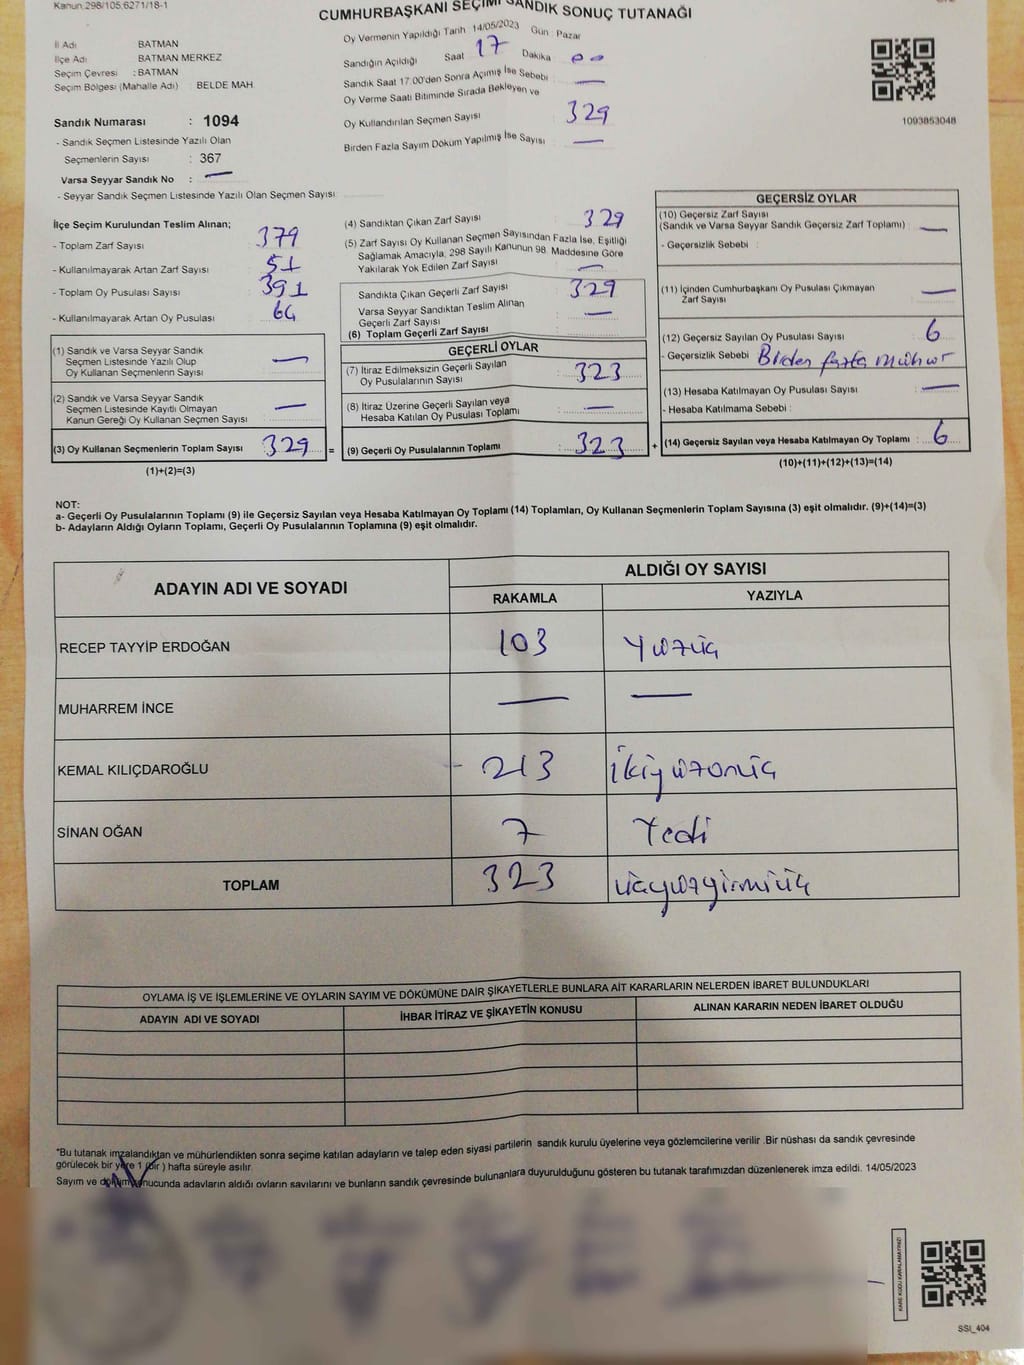 Kanun 298/105;6271/18-1
CUMHURBAŞKANI SEÇİMİ SANDIK SONUÇ TUTANAĞI
İl Adı BATMAN
İlçe Adı BATMAN MERKEZ
Seçim Çevresi : BATMAN
Seçim Bölgesi (Mahalle Adı) BELDE MAH.
Sandık Numarası : 1094
- Sandık Seçmen Listesinde Yazılı Olan
Seçmenlerin Sayısı : 367
Varsa Seyyar Sandık No : —
- Seyyar Sandık Seçmen Listesinde Yazılı Olan Seçmen Sayısı
Oy Vermenin Yapıldığı Tarih 14/05/2023 Gün Pazar
Sandığın Açıldığı Saat 17 Dakika 00
Sandık Saat 17.00'den Sonra Açımış İse Sebebi —
Oy Verme Saati Bitiminde Sırada Bekleyen ve
Oy Kullandırılan Seçmen Sayısı 329
Birden Fazla Sayım Döküm Yapılmış İse Sayısı —
1093853048
İlçe Seçim Kurulundan Teslim Alınan;
- Toplam Zarf Sayısı 379
- Kullanılmayarak Artan Zarf Sayısı 51
- Toplam Oy Pusulası Sayısı 391
- Kullanılmayarak Artan Oy Pusulası 64
(1) Sandık ve Varsa Seyyar Sandık
Seçmen Listesinde Yazılı Olup
Oy Kullanan Seçmenlerin Sayısı —
(2) Sandık ve Varsa Seyyar Sandık
Seçmen Listesinde Kayıtlı Olmayan
Kanun Gereği Oy Kullanan Seçmen Sayısı —
(3) Oy Kullanan Seçmenlerin Toplam Sayısı 329 =
(1)+(2)=(3)
(4) Sandıktan Çıkan Zarf Sayısı 329
(5) Zarf Sayısı Oy Kullanan Seçmen Sayısından Fazla İse, Eşitliği
Sağlamak Amacıyla, 298 Sayılı Kanunun 98. Maddesine Göre
Yakılarak Yok Edilen Zarf Sayısı —
Sandıkta Çıkan Geçerli Zarf Sayısı 329
Varsa Seyyar Sandıktan Teslim Alınan
Geçerli Zarf Sayısı —
(6) Toplam Geçerli Zarf Sayısı
GEÇERLİ OYLAR
(7) İtiraz Edilmeksizin Geçerli Sayılan
Oy Pusulalarının Sayısı : 323
(8) İtiraz Üzerine Geçerli Sayılan veya
Hesaba Katılan Oy Pusulası Toplamı : —
(9) Geçerli Oy Pusulalarının Toplamı : 323 +
GEÇERSİZ OYLAR
(10) Geçersiz Zarf Sayısı
(Sandık ve Varsa Seyyar Sandık Geçersiz Zarf Toplamı) : —
- Geçersizlik Sebebi :
(11) İçinden Cumhurbaşkanı Oy Pusulası Çıkmayan
Zarf Sayısı —
(12) Geçersiz Sayılan Oy Pusulası Sayısı 6
- Geçersizlik Sebebi Birden fazla mühür
(13) Hesaba Katılmayan Oy Pusulası Sayısı —
- Hesaba Katılmama Sebebi :
(14) Geçersiz Sayılan veya Hesaba Katılmayan Oy Toplamı : 6
(10)+(11)+(12)+(13)=(14)
NOT:
a- Geçerli Oy Pusulalarının Toplamı (9) ile Geçersiz Sayılan veya Hesaba Katılmayan Oy Toplamı (14) Toplamları, Oy Kullanan Seçmenlerin Toplam Sayısına (3) eşit olmalıdır. (9)+(14)=(3)
b- Adayların Aldığı Oyların Toplamı, Geçerli Oy Pusulalarının Toplamına (9) eşit olmalıdır.
ADAYIN ADI VE SOYADI ALDIĞI OY SAYISI
RAKAMLA YAZIYLA
RECEP TAYYİP ERDOĞAN 103 Yüzüç
MUHARREM İNCE — —
KEMAL KILIÇDAROĞLU 213 İkiyüzonüç
SİNAN OĞAN 7 Yedi
TOPLAM 323 üçyüzyirmiüç
OYLAMA İŞ VE İŞLEMLERİNE VE OYLARIN SAYIM VE DÖKÜMÜNE DAİR ŞİKAYETLERLE BUNLARA AİT KARARLARIN NELERDEN İBARET BULUNDUKLARI
ADAYIN ADI VE SOYADI İHBAR İTİRAZ VE ŞİKAYETİN KONUSU ALINAN KARARIN NEDEN İBARET OLDUĞU
*Bu tutanak imzalandıktan ve mühürlendikten sonra seçime katılan adayların ve talep eden siyasi partilerin sandık kurulu üyelerine veya gözlemcilerine verilir .Bir nüshası da sandık çevresinde
görülecek bir yere 1 (bir ) hafta süreyle asılır.
Sayım ve döküm sonucunda adayların aldığı oyların sayılarını ve bunların sandık çevresinde bulunanlara duyurulduğunu gösteren bu tutanak tarafımızdan düzenlenerek imza edildi. 14/05/2023
KARE KODU KARALAMAYINIZ!
SSI_404